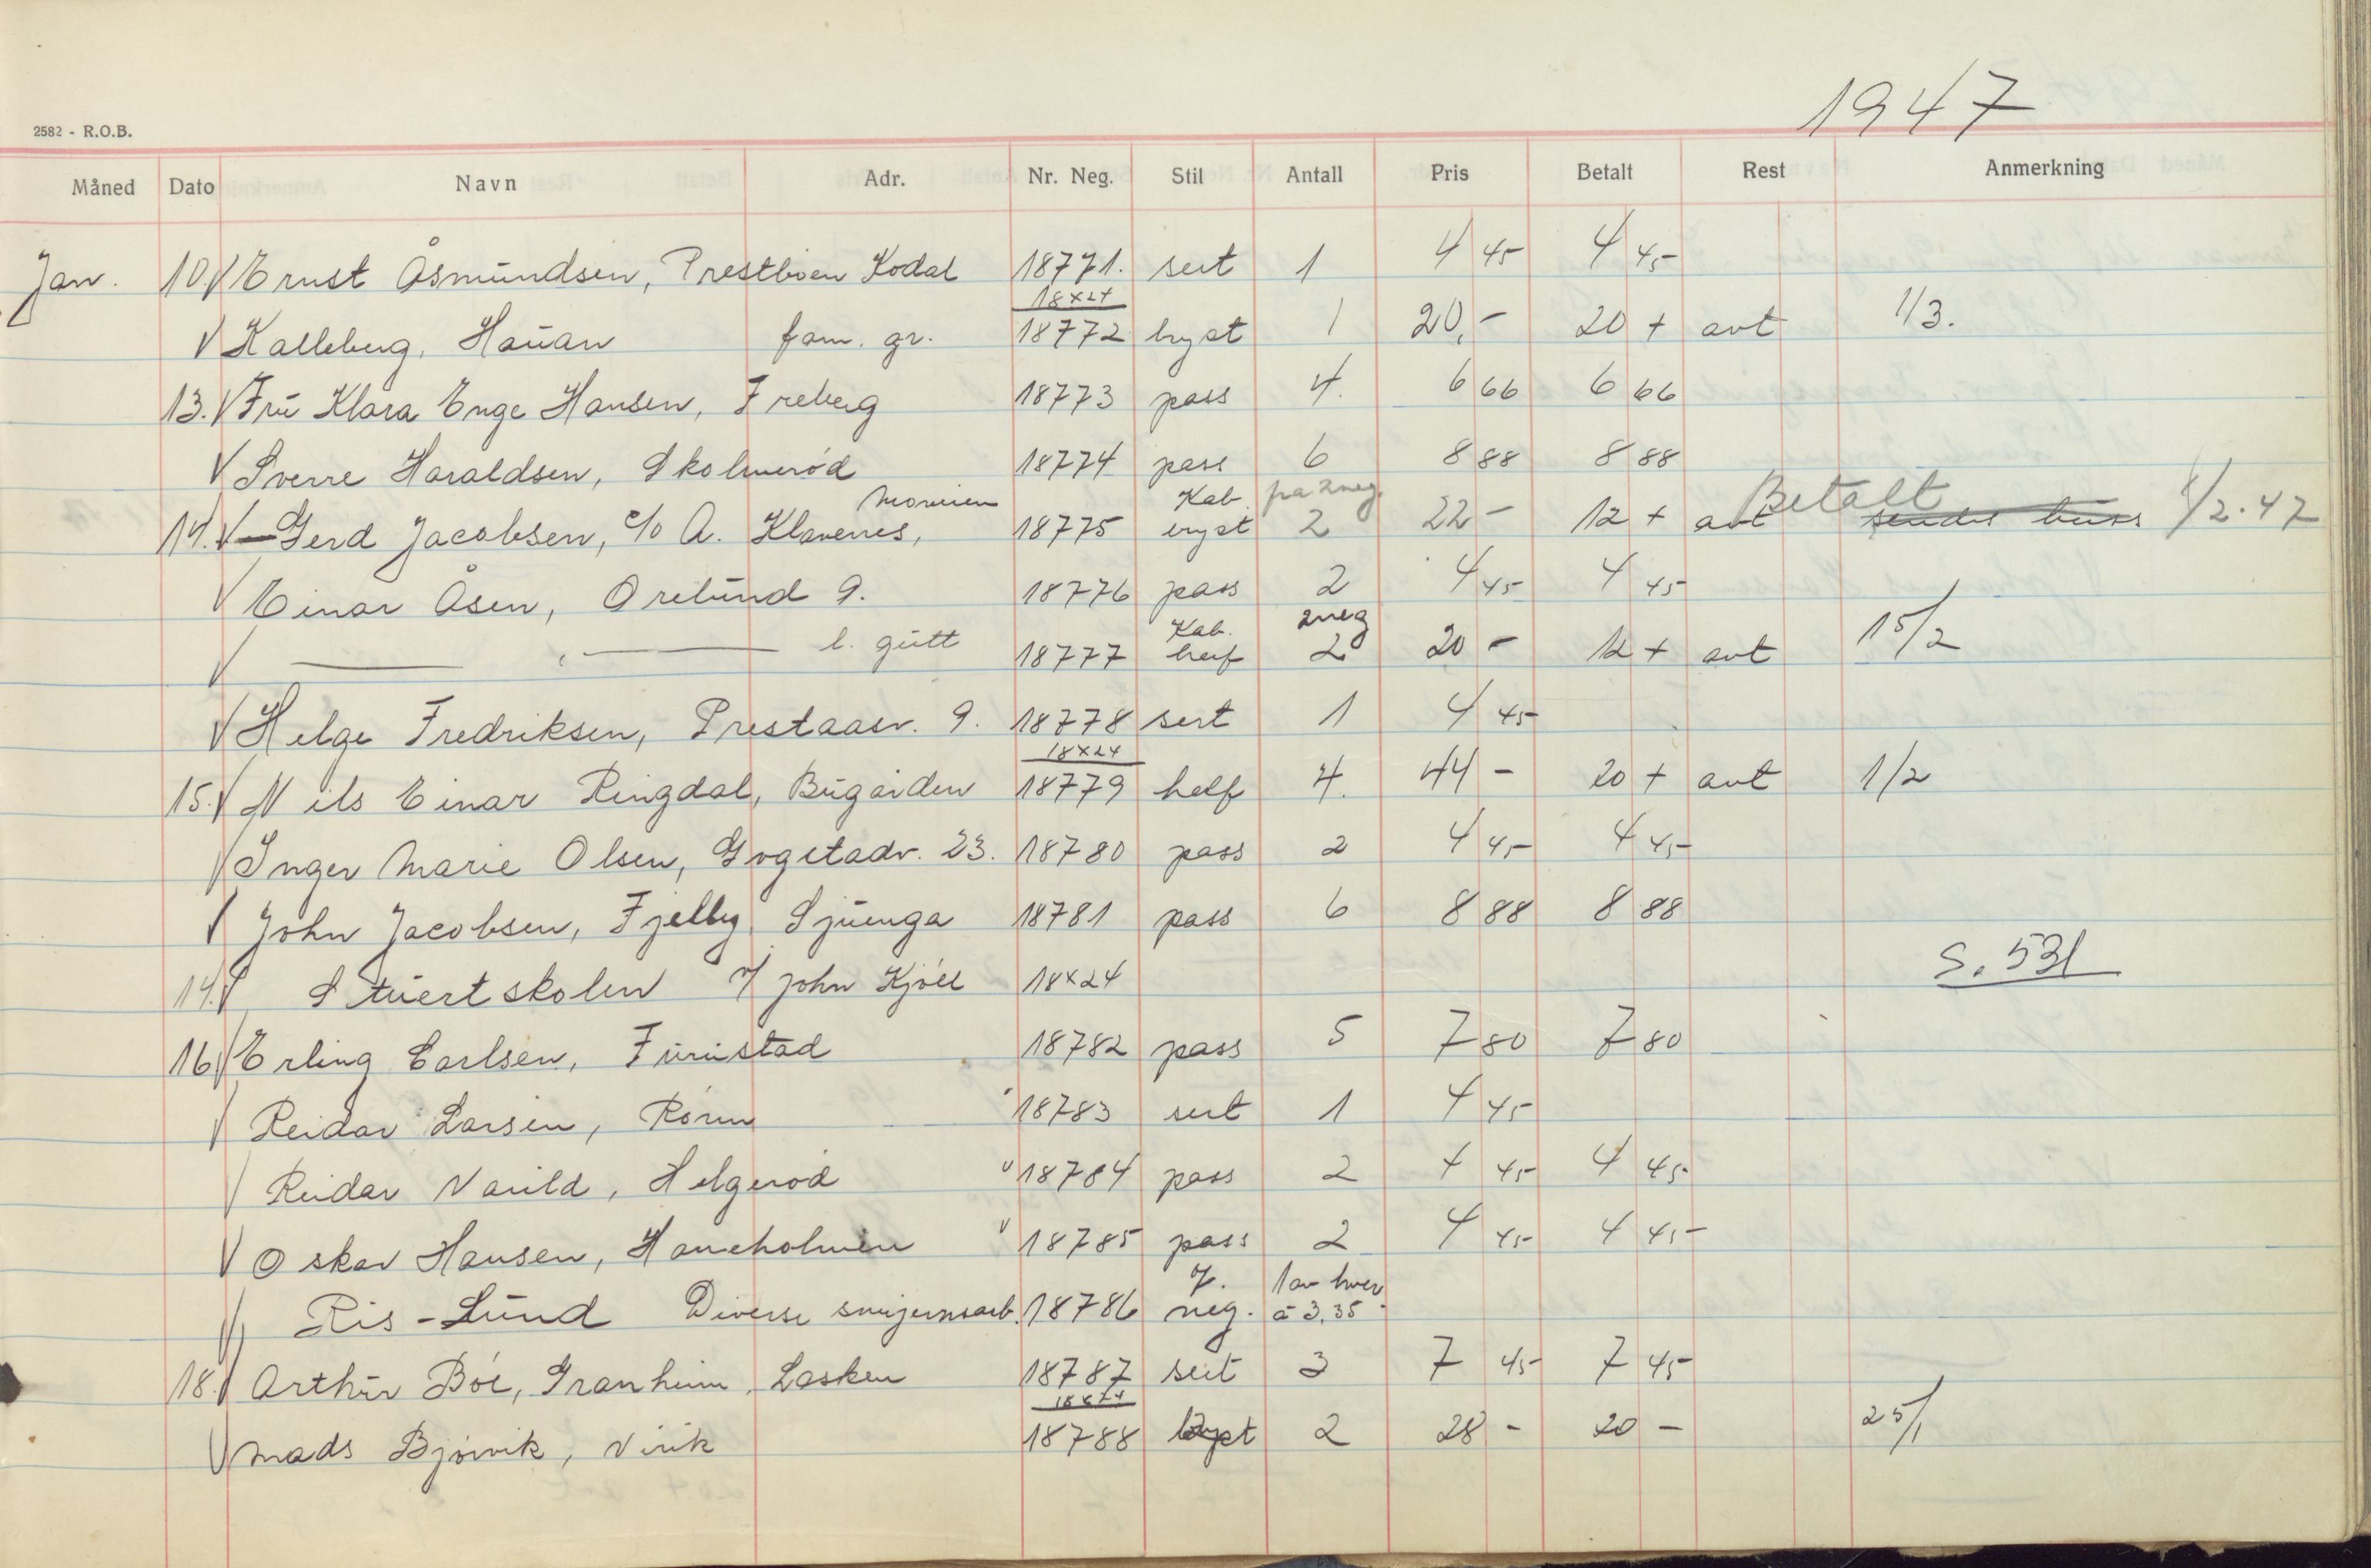 1947
2582 - R.O.B.
Måned Dato Navn Adr. Nr. Neg. Stil Antall Pris Betalt Rest Anmerkning
Jan. 10. Ernst Åsmundsen, Prestbøen Kodal 18771. sert 1 4 45 4 45
18x24
Kalleberg, Hauan fam. gr. 18772 bryst 1 20,- 20 + avt 1/3.
13. Fru Klara Enge Hansen, Freberg 18773 pass 4. 6 66 6 66
Sverre Haraldsen, Skolmerød 18774 pass 6 8 88 8 88
Kab. på 2 neg. Betalt
14. Gerd Jacobsen, c/o A. Klavenes, 18775 bryst 2 22 - 12 + avt sendes buss 1/2.47
Einar Åsen, Orelund 9. 18776 pass 2 4 45 4 45
Kab. 2 neg
l. gutt 18777 helf 2 20 - 12 + avt 15/2
Helge Fredriksen, Prestaasv. 9. 18778 sert 1 4 45
18x24
15. Nils Einar Ringdal, Bugården 18779 helf 4. 44 - 20 + avt 1/2
Inger Marie Olsen, Gogstadv. 23. 18780 pass 2 4 45 4 45
John Jacobsen, Fjellby, Sjuenga 18781 pass 6 8 88 8 88
14. Stuertskolen v/ John Kjøll 18x24 S. 531
16 Erling Carlsen, Furustad 18782 pass 5 7 80 7 80
Reidar Larsen, Rørvn 18783 sert 1 4 45
Reidar Narild, Helgerød 18784 pass 2 4 45 4 45
Oskar Hansen, Haneholmen 18785 pass 2 4 45 4 45
7. 1 av hver
Ris-Lund Diverse smijernsarb. 18786 neg. à 3,35
18. Arthur Bøe, Granheim, Lasken 18787 sert 3 7 45 7 45
18x24
Mads Bjørvik, Virik 18788 bryst 2 28 - 20 - 25/1